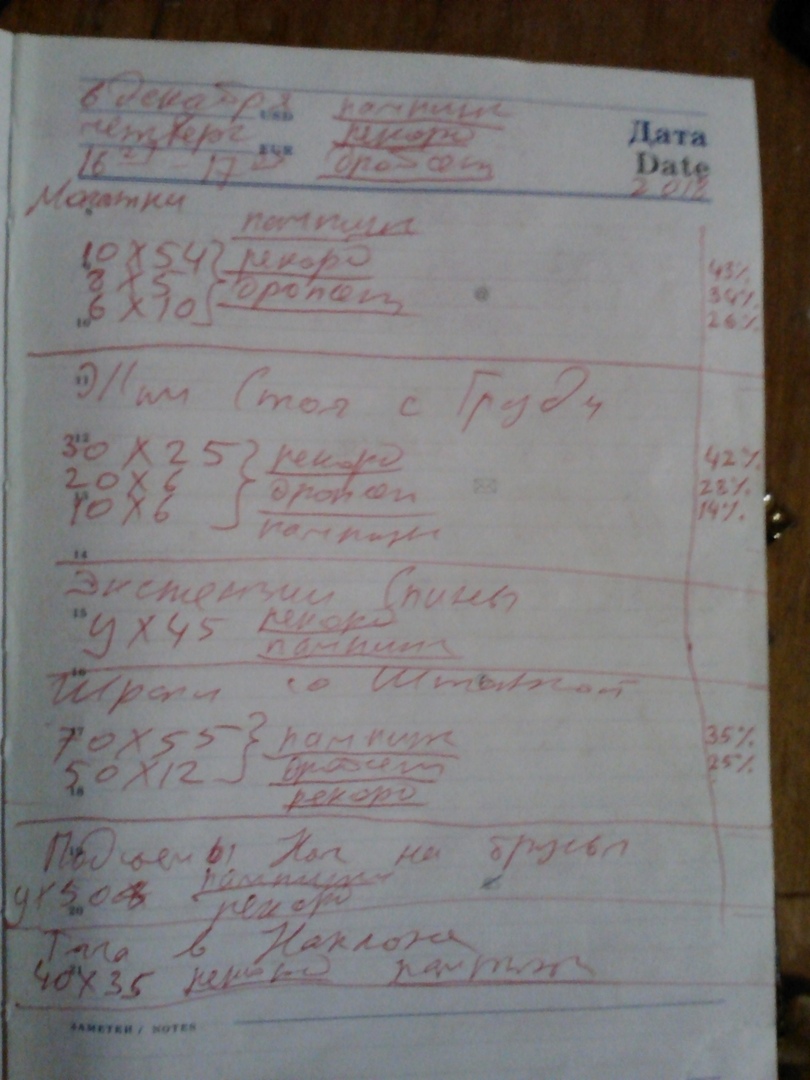 6 декабря USD пампинг
четверг EUR рекорд
16 – 17 дропсет
Дата
Date
2012
Молотки
пампинг
10 X 54 } рекорд 43%
8 X 5 } дропсет 34%
6 X 10 26%
10
11
Жим Стоя с Груди
12
30 X 25 } рекорд 42%
20 X 6 } дропсет 28%
13
10 X 6 пампинг 14%
14
Экстензии Спины
15
У X 45 рекорд
пампинг
16
Шраги со Штангой
17
70 X 55 } пампинг 35%
50 X 12 } дропсет 25%
18
рекорд
Подъемы Ног на брусьях
У X 50 пампинг
20
рекорд
Тяга в Наклоне
40 X 35 рекорд пампинг
ЗАМЕТКИ / NOTES